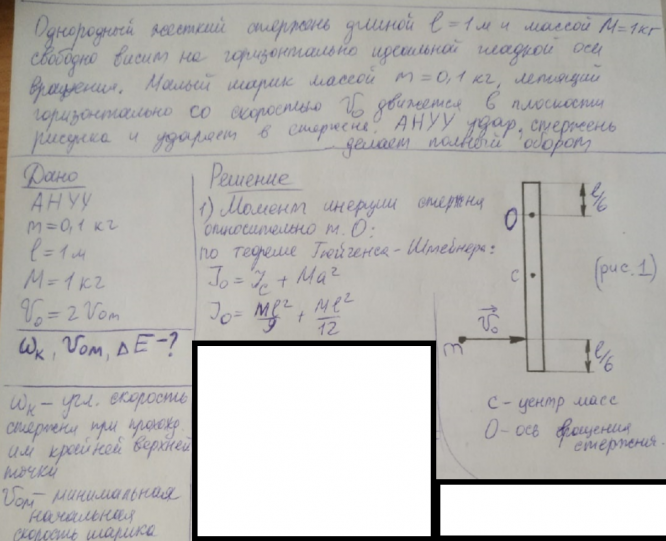 Однородный жесткий стержень длиной l = 1 м и массой M = 1 кг
свободно висит на горизонтально идеальной гладкой оси
вращения. Малый шарик массой m = 0,1 кг, летящий
горизонтально со скоростью V₀ движется в плоскости
рисунка и ударяет в стержень. АНУУ удар, стержень
делает полный оборот
Дано
АНУУ
m = 0,1 кг
l = 1 м
M = 1 кг
V₀ = 2 V₀m
ωк, V₀m, ΔE - ?
ωк – угл. скорость
стержня при проход.
им крайней верхней
точки
V₀m – минимальная
начальная
скорость шарика
Решение
1) Момент инерции стержня
относительно т. О:
по теореме Гюйгенса-Штейнера:
J₀ = Jc + Ma²
J₀ = Ml²/9 + Ml²/12
O
C
m
V₀
l/6
(рис. 1)
l/6
C – центр масс
O – ось вращения
стержня.